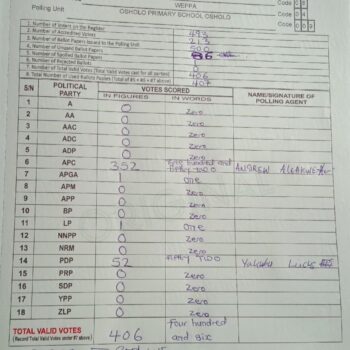 WEPPA Code 0
Polling Unit OSHOLO PRIMARY SCHOOL OSHOLO Code 0
1. Number of Voters on the Register 493
2. Number of Accredited Voters
3. Number of Ballot Papers Issued to the Polling Unit 500
4. Number of Unused Ballot Papers
5. Number of Spoiled Ballot Papers
6. Number of Rejected Ballots
7. Number of Total Valid Votes (Total Valid Votes cast for all parties) 406
8. Total Number of Used Ballot Papers (Total of #5 + #6 + #7 above) 407
S/N POLITICAL PARTY VOTES SCORED NAME/SIGNATURE OF POLLING AGENT
IN FIGURES IN WORDS
1 A 0 Zero
2 AA 0 Zero
3 AAC 0 Zero
4 ADC 0 Zero
5 ADP 0 Zero
6 APC 352 hundred and fifty two ANDREW
7 APGA 1 one
8 APM 0 Zero
9 APP 0 Zero
10 BP 0 Zero
11 LP 1 one
12 NNPP 0 Zero
13 NRM 0 Zero
14 PDP 52 FIFTY TWO
15 PRP 0 Zero
16 SDP 0 Zero
17 YPP 0 Zero
18 ZLP 0 Zero
TOTAL VALID VOTES 406 Four hundred and six
(Record Total Valid Votes under #7 above)